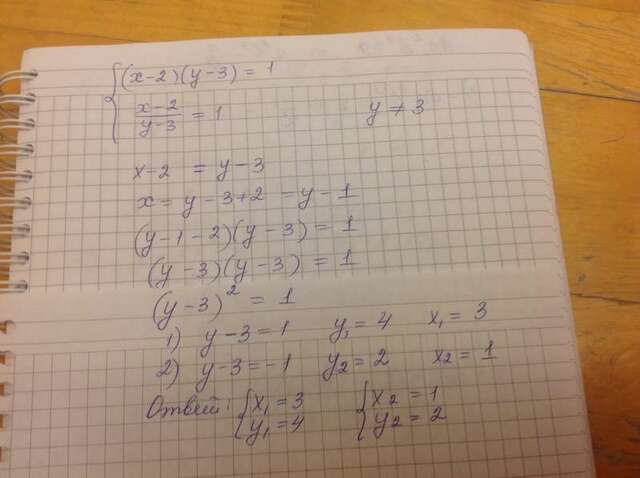 (x-2)(y-3) = 1
x-2/y-3 = 1 y ≠ 3
x-2 = y-3
x = y-3+2 = y-1
(y-1-2)(y-3) = 1
(y-3)(y-3) = 1
(y-3)² = 1
1) y-3=1 y₁=4 x₁=3
2) y-3=-1 y₂=2 x₂=1
Ответ: {x₁=3 {x₂=1
y₁=4 y₂=2